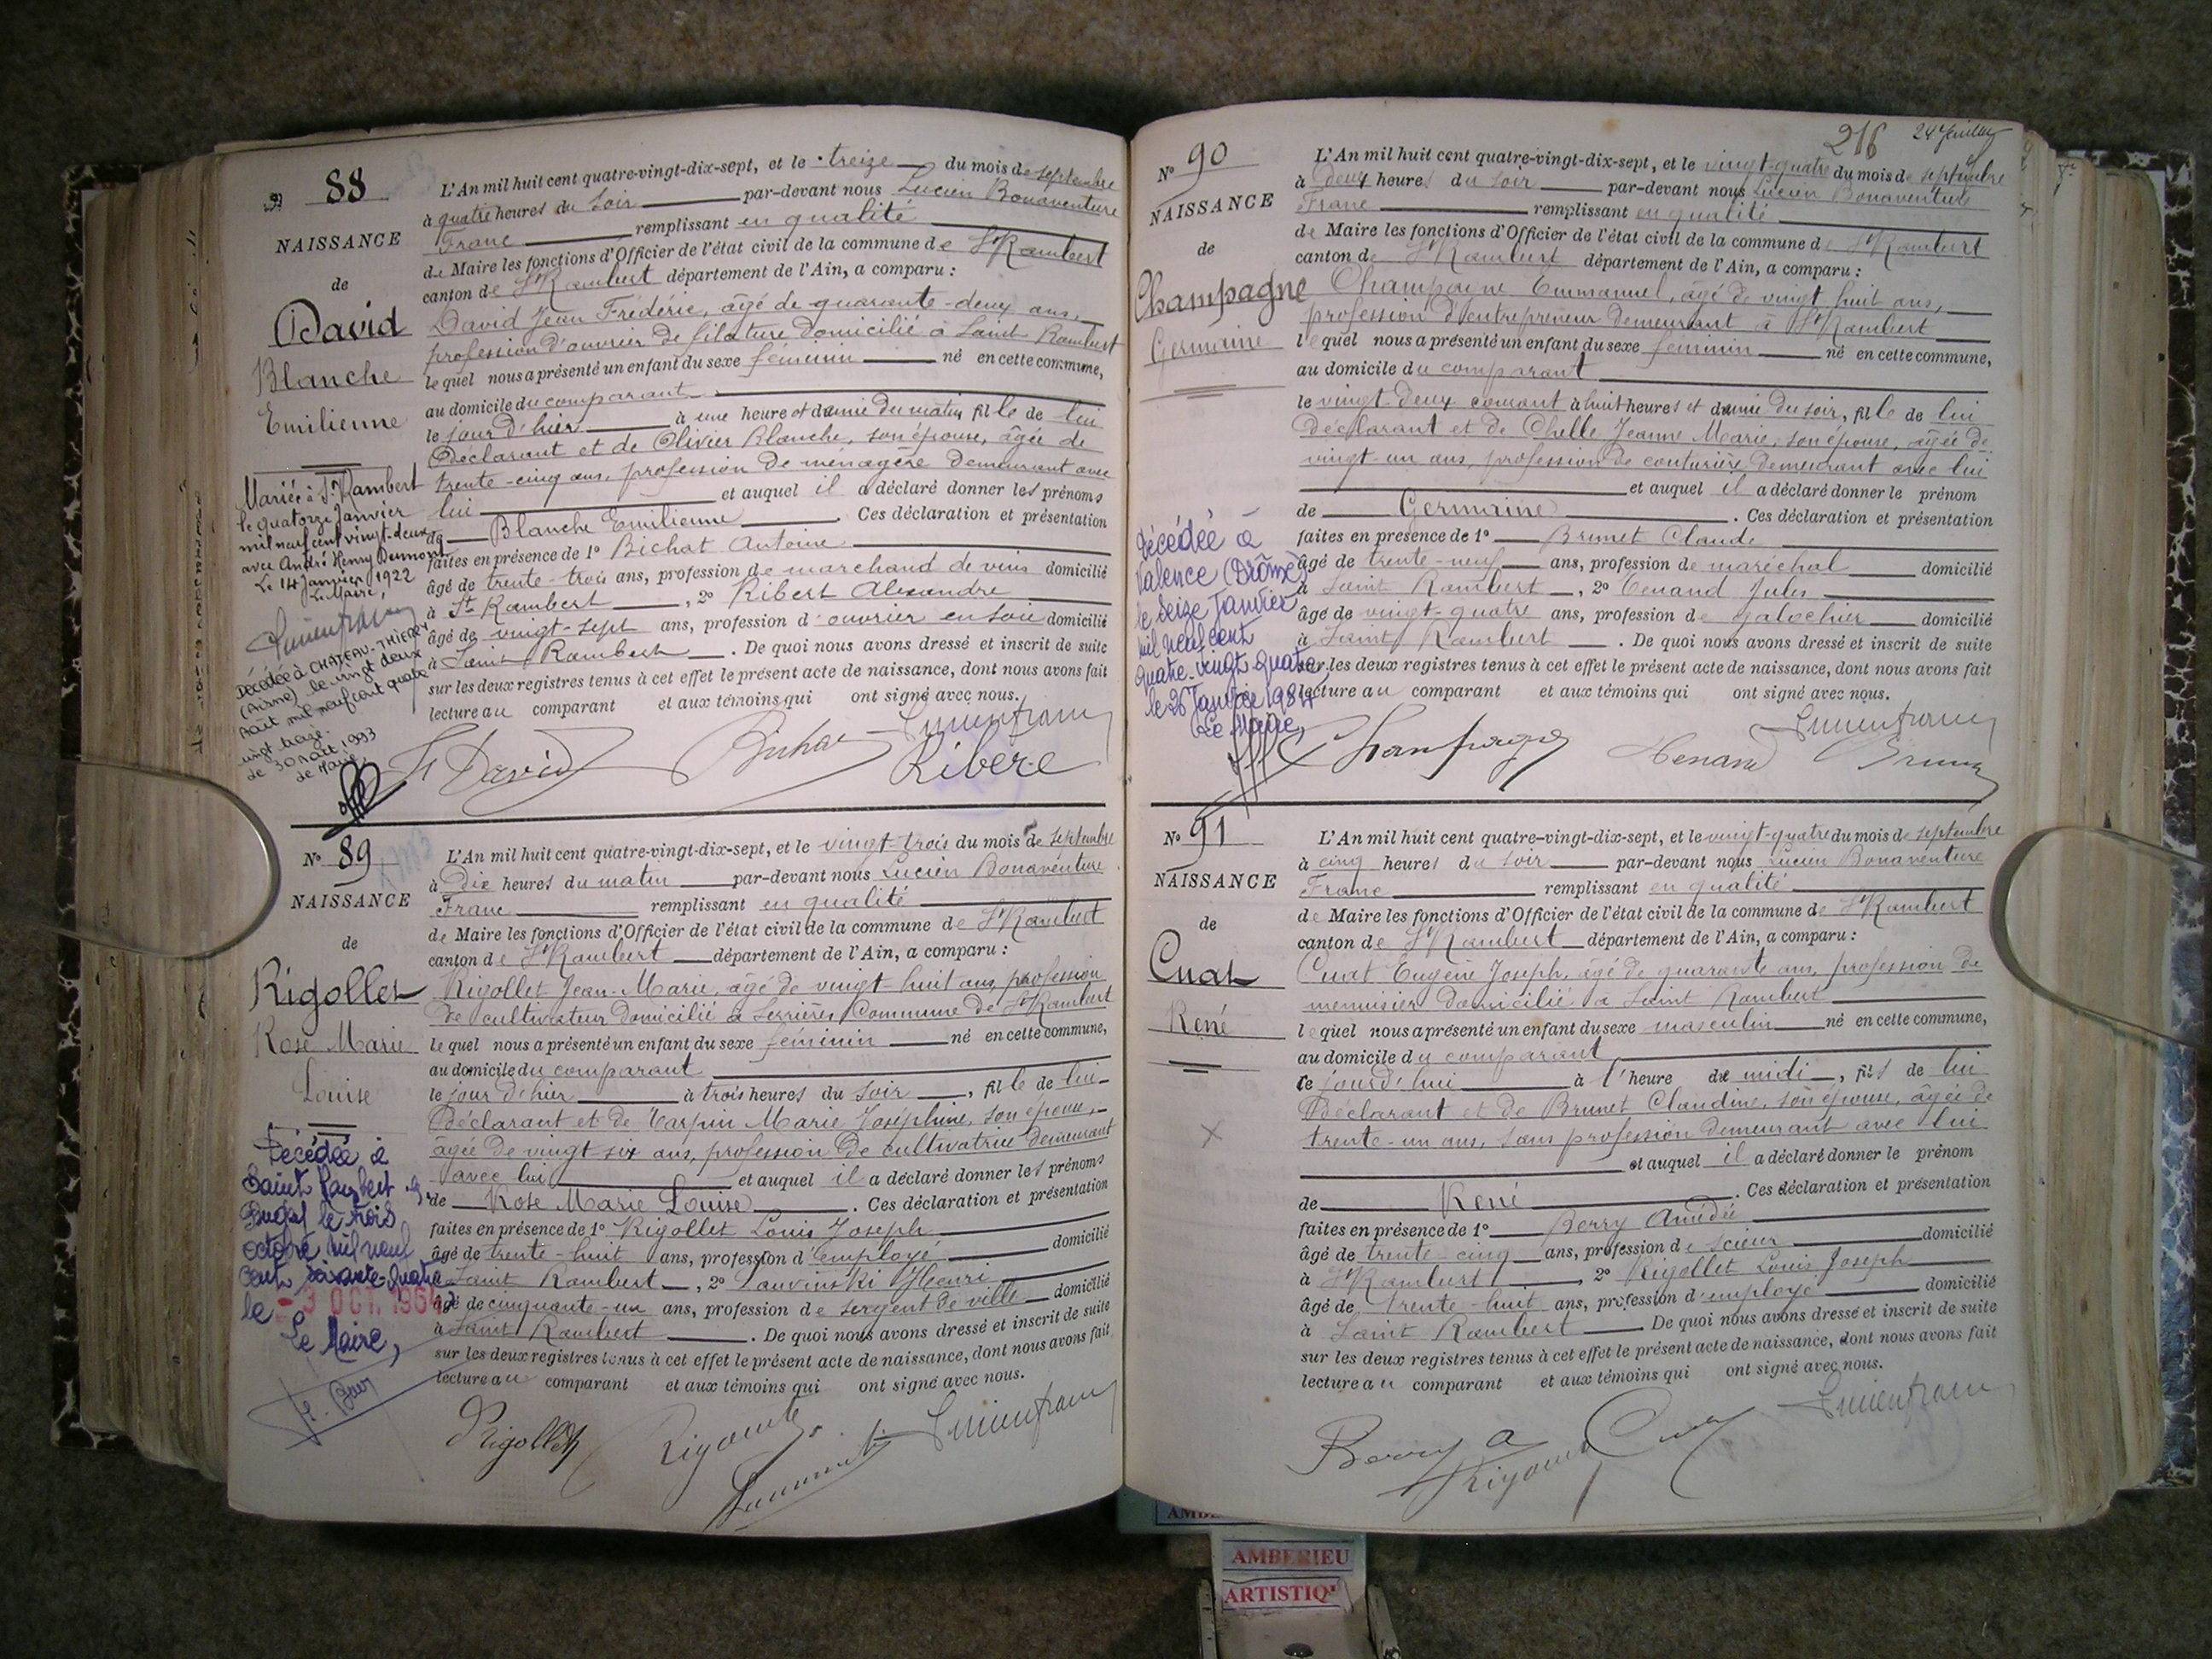 88
NAISSANCE
de
David
Blanche
Emilienne
Mariée à St Rambert
le quatorze Janvier
mil neuf cent vingt-deux
avec André Henry Dumont
Le 14 Janvier 1922
Le Maire,
Décédée à CHATEAU-THIERRY
(Aisne) le vingt deux
Août mil neuf cent quatre
vingt treize.
Le 30 Août 1993
Le Maire,
L'An mil huit cent quatre-vingt-dix-sept, et le treize du mois de septembre
à quatre heures du soir par-devant nous Lucien Bonaventure
Franc remplissant en qualité
de Maire les fonctions d'Officier de l'état civil de la commune de St Rambert
canton de St Rambert département de l'Ain, a comparu :
David Jean Frédéric, âgé de quarante-deux ans,
profession d'ouvrier de filature domicilié à Saint Rambert
lequel nous a présenté un enfant du sexe féminin né en cette commune,
au domicile du comparant
le jour d'hier à une heure et demie du matin, fille de lui
Déclarant et de Olivier Blanche, son épouse, âgée de
trente-cinq ans, profession de ménagère demeurant avec
lui et auquel il a déclaré donner les prénoms
de Blanche Emilienne . Ces déclaration et présentation
faites en présence de 1° Bichat Antoine
âgé de trente-trois ans, profession de marchand de vins domicilié
à St Rambert , 2° Ribert Alexandre
âgé de vingt-sept ans, profession d'ouvrier en soie domicilié
à Saint Rambert . De quoi nous avons dressé et inscrit de suite
sur les deux registres tenus à cet effet le présent acte de naissance, dont nous avons fait
lecture au comparant et aux témoins qui ont signé avec nous.
David Lucien franc
Ribere
N° 89
NAISSANCE
de
Rigollet
Rose Marie
Louise
Décédée à
Saint Rambert en
Bugey le trois
octobre mil neuf
cent soixante-quatre
le - 3 OCT. 1964
Le Maire,
L'An mil huit cent quatre-vingt-dix-sept, et le vingt-trois du mois de septembre
à Dix heures du matin par-devant nous Lucien Bonaventure
Franc remplissant en qualité
de Maire les fonctions d'Officier de l'état civil de la commune de St Rambert
canton de St Rambert département de l'Ain, a comparu :
Rigollet Jean-Marie, âgé de vingt-huit ans, profession
de cultivateur domicilié à Serrières, Commune de St Rambert
lequel nous a présenté un enfant du sexe féminin né en cette commune,
au domicile du comparant
le jour d'hier à trois heures du soir , fille de lui
Déclarant et de Carpin Marie Joséphine, son épouse,
âgée de vingt-six ans, profession de cultivatrice demeurant
avec lui et auquel il a déclaré donner les prénoms
de Rose Marie Louise . Ces déclaration et présentation
faites en présence de 1° Rigollet Louis Joseph
âgé de trente-huit ans, profession d'employé domicilié
à Saint Rambert , 2° Henri
âgé de cinquante-un ans, profession de sergent de ville domicilié
à Saint Rambert . De quoi nous avons dressé et inscrit de suite
sur les deux registres tenus à cet effet le présent acte de naissance, dont nous avons fait
lecture au comparant et aux témoins qui ont signé avec nous.
Rigollet Lucien franc
216 24 Juillet
N° 90
NAISSANCE
de
Champagne
Germaine
Décédée à
Valence (Drôme)
le seize Janvier
mil neuf cent
quatre-vingt quatre
le 26 Janvier 1984
Le Maire,
L'An mil huit cent quatre-vingt-dix-sept, et le vingt-quatre du mois de septembre
à deux heures du soir par-devant nous Lucien Bonaventure
Franc remplissant en qualité
de Maire les fonctions d'Officier de l'état civil de la commune de St Rambert
canton de St Rambert département de l'Ain, a comparu :
Champagne Emmanuel, âgé de vingt huit ans,
profession d'entrepreneur demeurant à St Rambert
lequel nous a présenté un enfant du sexe féminin né en cette commune,
au domicile du comparant
le vingt-deux courant à huit heures et demie du soir, fille de lui
Déclarant et de Chelle Jeanne Marie, son épouse, âgée de
vingt-un ans, profession de couturière demeurant avec lui
et auquel il a déclaré donner le prénom
de Germaine . Ces déclaration et présentation
faites en présence de 1° Brunet Claude
âgé de trente-neuf ans, profession de maréchal domicilié
à Saint Rambert , 2° Tenand Jules
âgé de vingt-quatre ans, profession de galochier domicilié
à Saint Rambert . De quoi nous avons dressé et inscrit de suite
sur les deux registres tenus à cet effet le présent acte de naissance, dont nous avons fait
lecture au comparant et aux témoins qui ont signé avec nous.
Champagne Lucien franc
N° 91
NAISSANCE
de
Cuat
René
L'An mil huit cent quatre-vingt-dix-sept, et le vingt-quatre du mois de septembre
à cinq heures du soir par-devant nous Lucien Bonaventure
Franc remplissant en qualité
de Maire les fonctions d'Officier de l'état civil de la commune de St Rambert
canton de St Rambert département de l'Ain, a comparu :
Cuat Eugène Joseph, âgé de quarante ans, profession de
menuisier domicilié à Saint Rambert
lequel nous a présenté un enfant du sexe masculin né en cette commune,
au domicile du comparant
ce jourd'hui à l'heure de midi , fils de lui
Déclarant et de Brunet Claudine, son épouse, âgée de
trente-un ans, sans profession demeurant avec lui
et auquel il a déclaré donner le prénom
de René . Ces déclaration et présentation
faites en présence de 1° Berry Amédée
âgé de trente-cinq ans, profession de scieur domicilié
à St Rambert , 2° Rigollet Louis Joseph
âgé de trente-huit ans, profession d'employé domicilié
à Saint Rambert De quoi nous avons dressé et inscrit de suite
sur les deux registres tenus à cet effet le présent acte de naissance, dont nous avons fait
lecture au comparant et aux témoins qui ont signé avec nous.
Berry a Lucien franc
AMBERIEU
ARTISTIQ